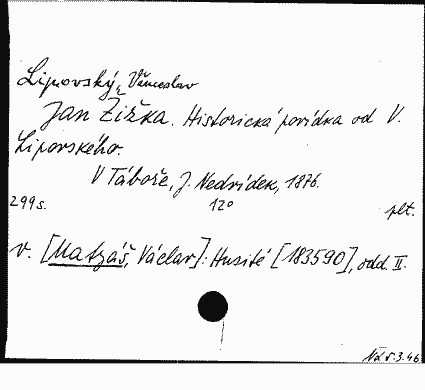 Lipovský, Věnceslav
Jan Žižka. Historická povídka od V.
Lipovského.
V Táboře, J. Nedvídek, 1876.
299 s. 12° plt.
v. [Matzáš, Václav]: Husité [183590], odd. II.
5.3.46